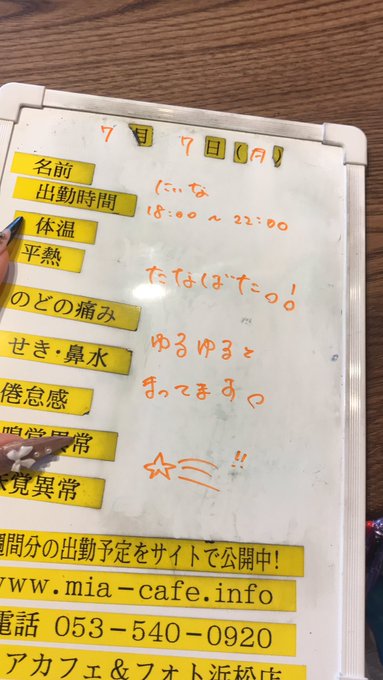 7月 7日(月)
名前
出勤時間 にいな
体温 18:00〜22:00
平熱
たなばたっ!
のどの痛み
せき・鼻水 ゆるゆると
倦怠感 まってます♡
嗅覚異常
味覚異常 ☆ !!
週間分の出勤予定をサイトで公開中!
www.mia-cafe.info
電話 053-540-0920
アカフェ&フォト浜松店